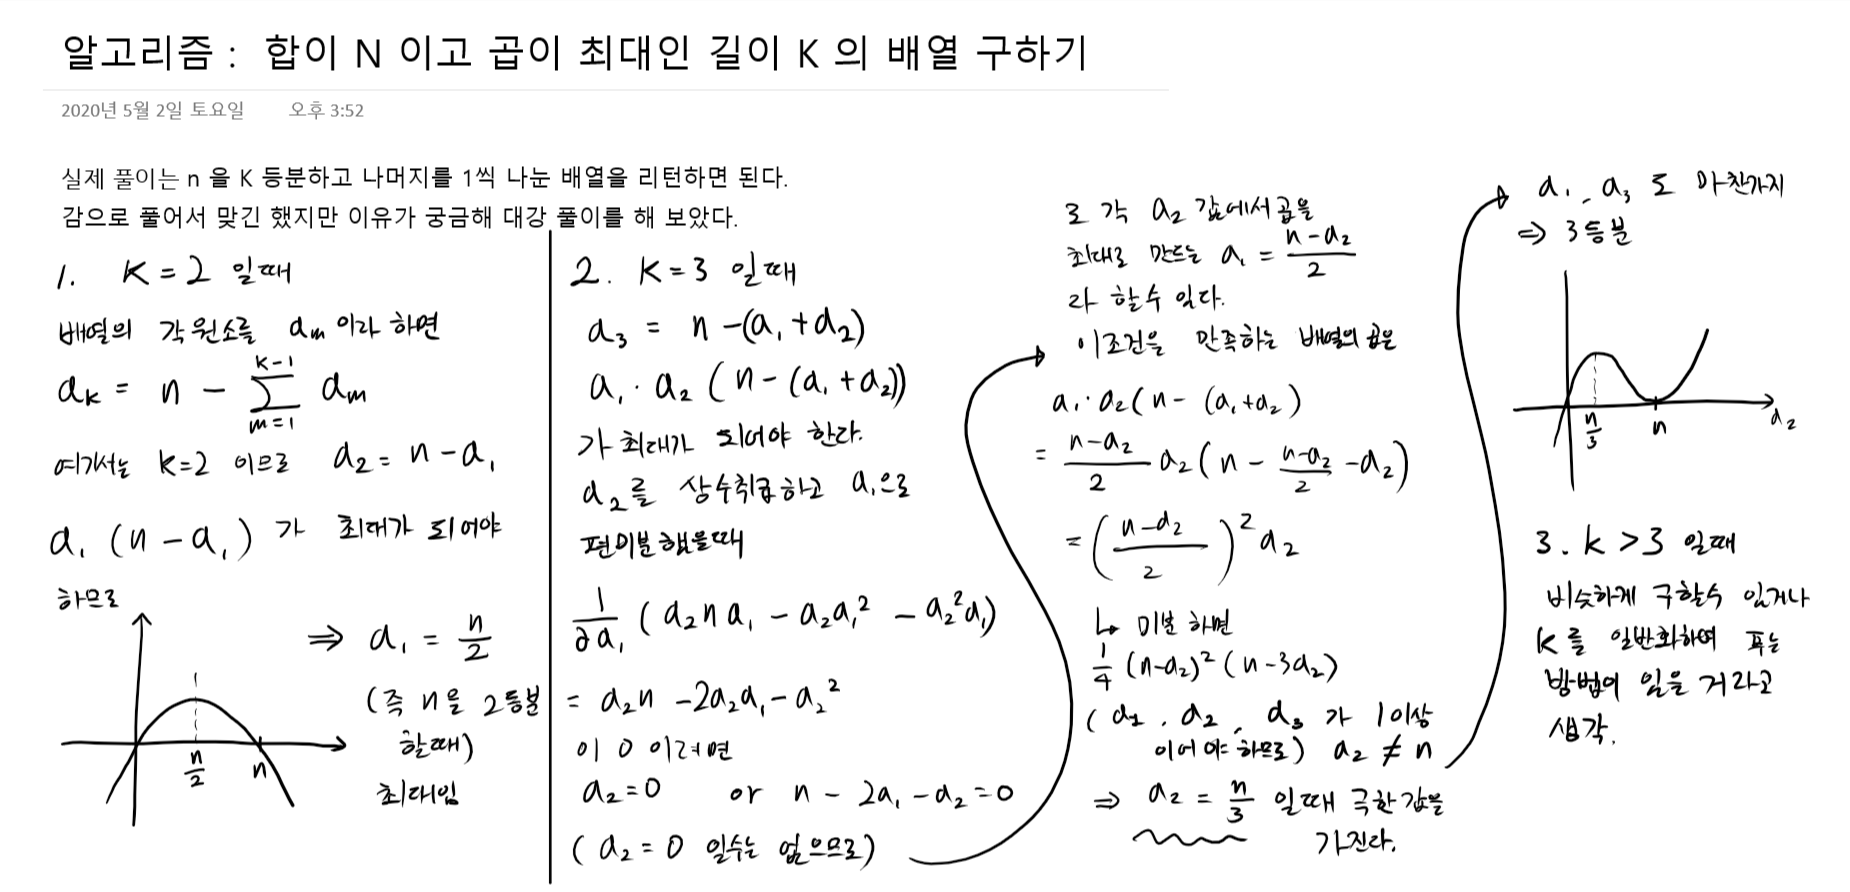 알고리즘 : 합이 N 이고 곱이 최대인 길이 K 의 배열 구하기
2020년 5월 2일 토요일 오후 3:52
실제 풀이는 n 을 K 등분하고 나머지를 1씩 나눈 배열을 리턴하면 된다.
감으로 풀어서 맞긴 했지만 이유가 궁금해 대강 풀이를 해 보았다.
1. K = 2 일때
배열의 각 원소를 a_m 이라 하면
a_k = n - \sum_{m=1}^{k-1} a_m
여기서는 k=2 이므로 a_2 = n - a_1
a_1 (n - a_1) 가 최대가 되어야
하므로
⇒ a_1 = n/2
(즉 n을 2등분
할때)
최대임
n/2 n
2. K = 3 일때
a_3 = n - (a_1 + a_2)
a_1 · a_2 (n - (a_1 + a_2))
가 최대가 되어야 한다.
a_2 를 상수취급하고 a_1으로
편미분 했을때
1/∂a_1 (a_2 n a_1 - a_2 a_1² - a_2² a_1)
= a_2 n - 2a_2 a_1 - a_2²
이 0 이려면
a_2 = 0 or n - 2a_1 - a_2 = 0
(a_2 = 0 일수는 없으므로)
로 각 a_2 값에서 곱을
최대로 만드는 a_1 = (n - a_2)/2
라 할수 있다.
이조건을 만족하는 배열의 곱은
a_1 · a_2 (n - (a_1 + a_2)
= (n - a_2)/2 a_2 (n - (n - a_2)/2 - a_2)
= ((n - a_2)/2)² a_2
↳ 미분 하면
1/4 (n - a_2)² (n - 3a_2)
(a_1, a_2, a_3 가 1이상
이어야 하므로) a_2 ≠ n
⇒ a_2 = n/3 일때 극한값을
가진다.
a_1, a_3 도 마찬가지
⇒ 3등분
n/3 n a_2
3. k > 3 일때
비슷하게 구할수 있거나
k를 일반화하여 푸는
방법이 있을 거라고
생각.